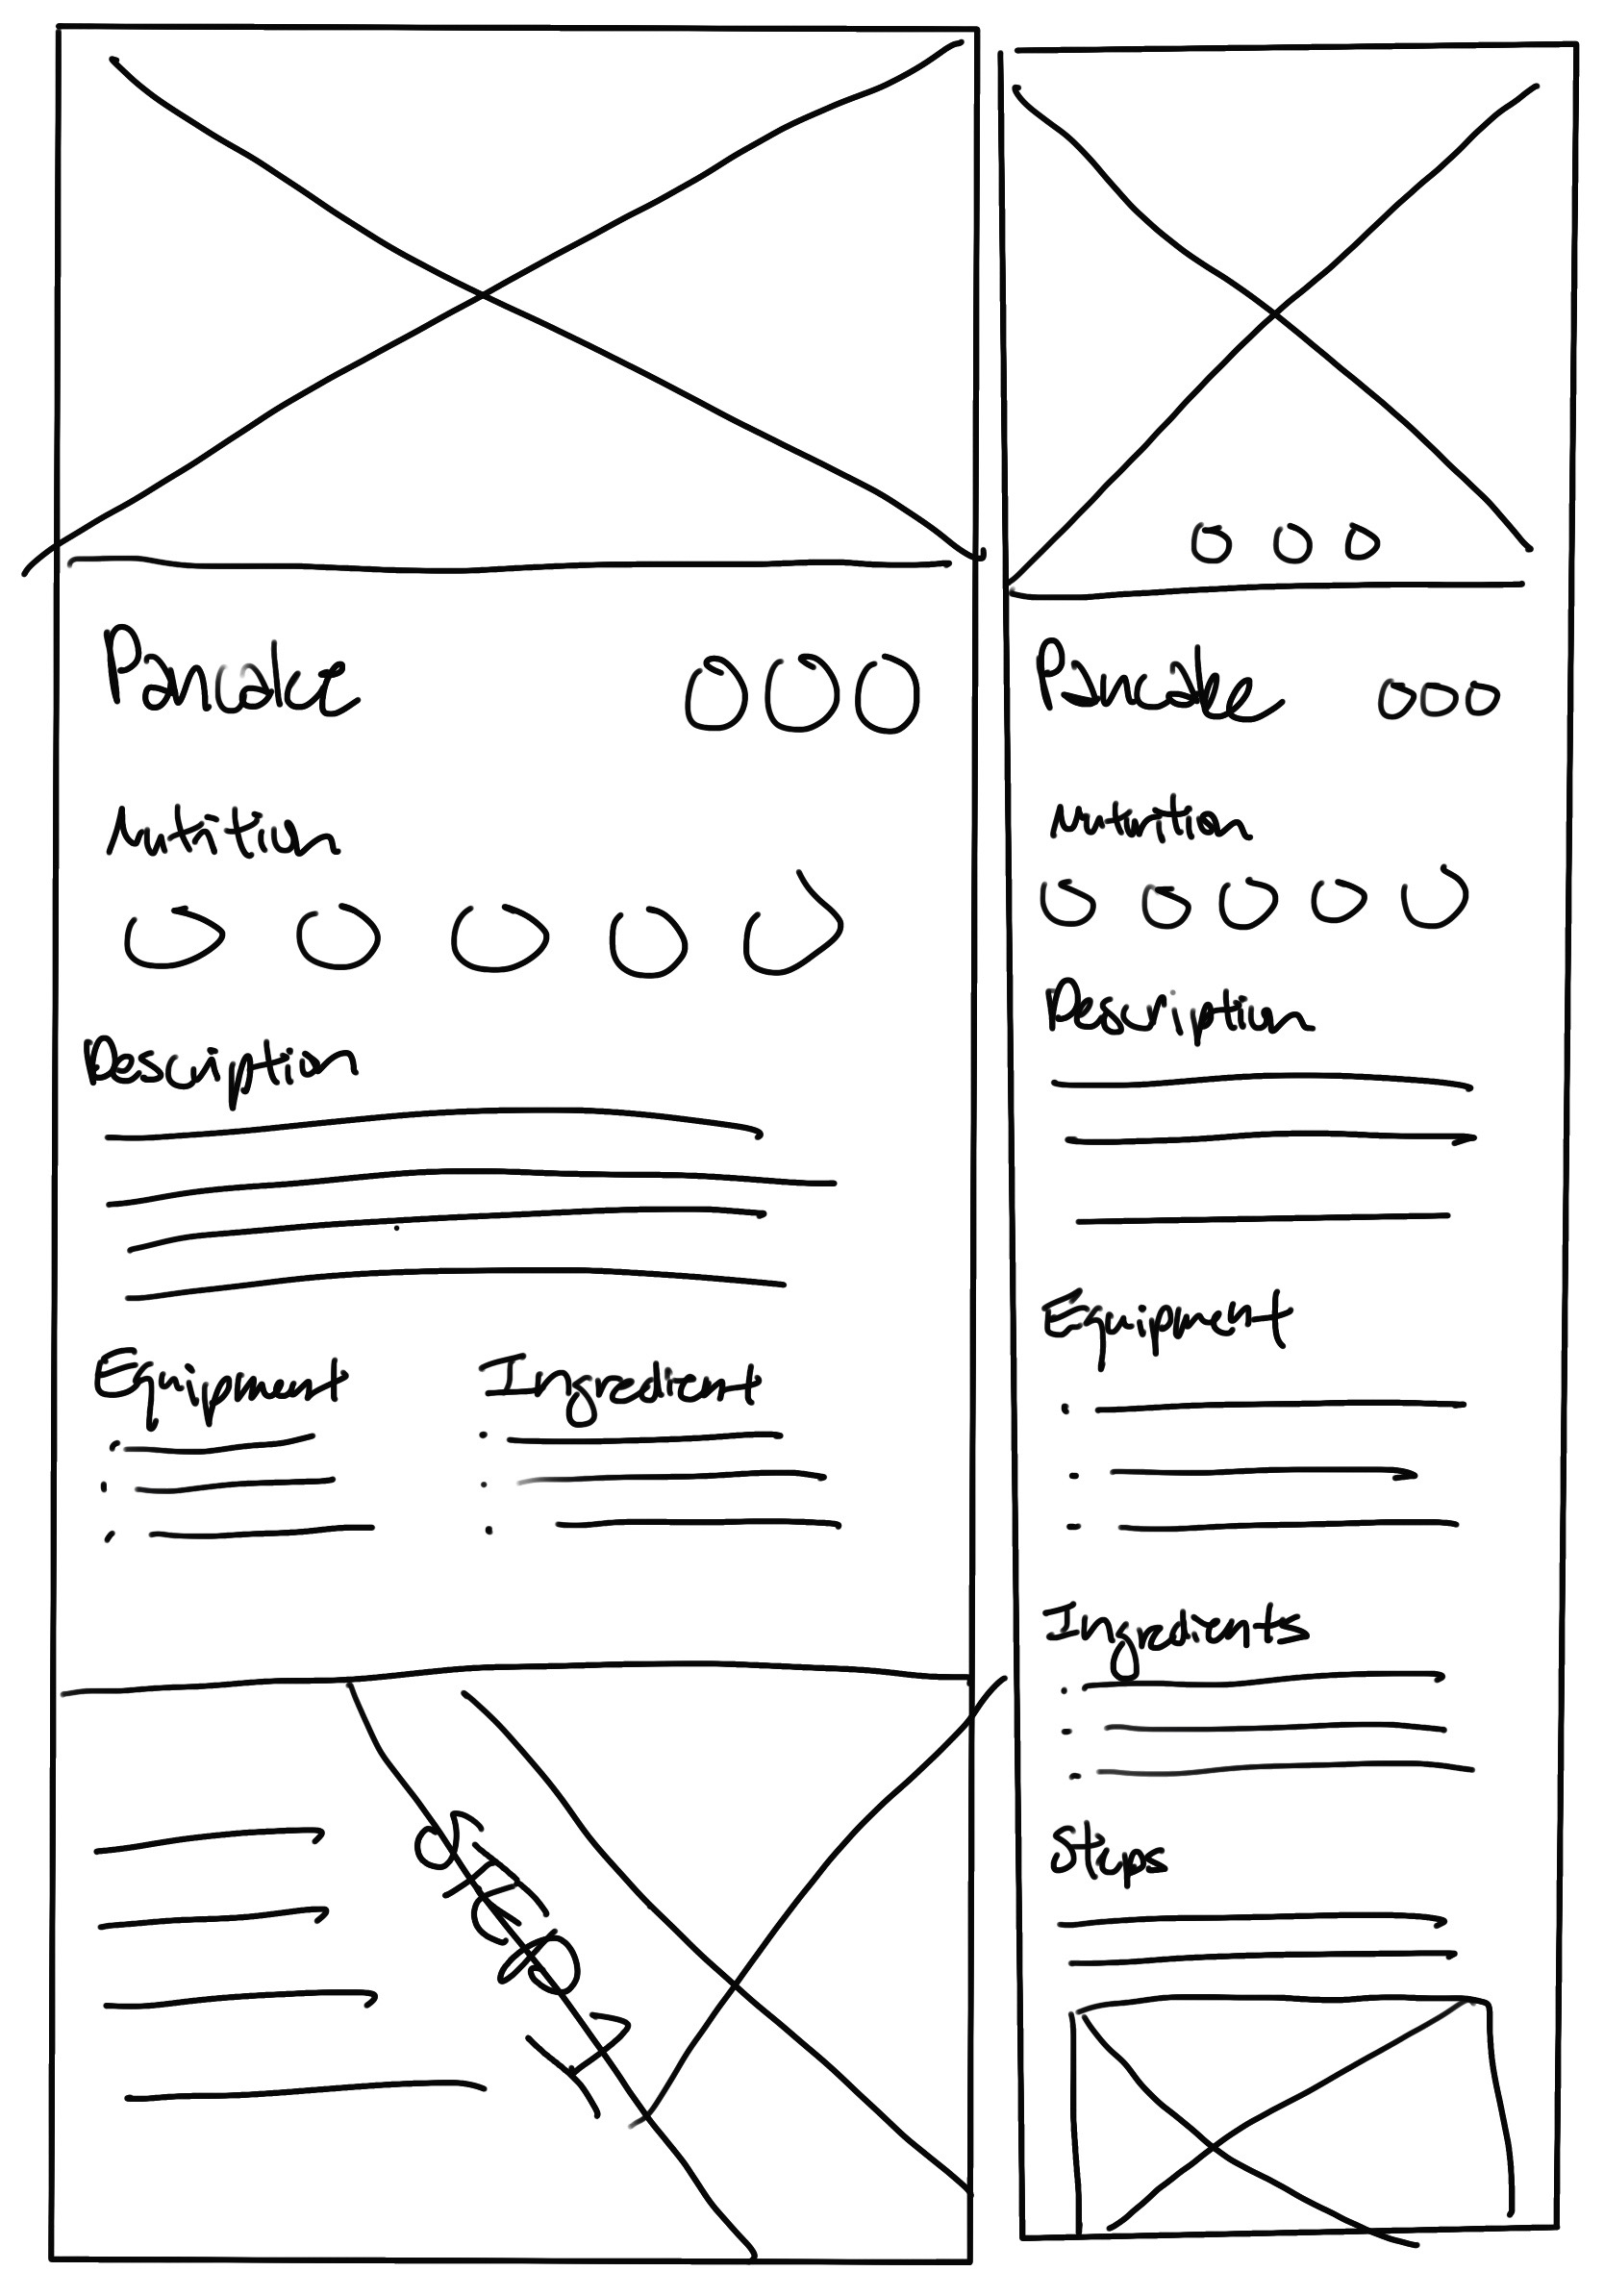 Pancake
Nutrition
Description
Equipment
Ingredient
STEP 1
Pancake
Nuturition
Description
Equipment
Ingredients
Steps